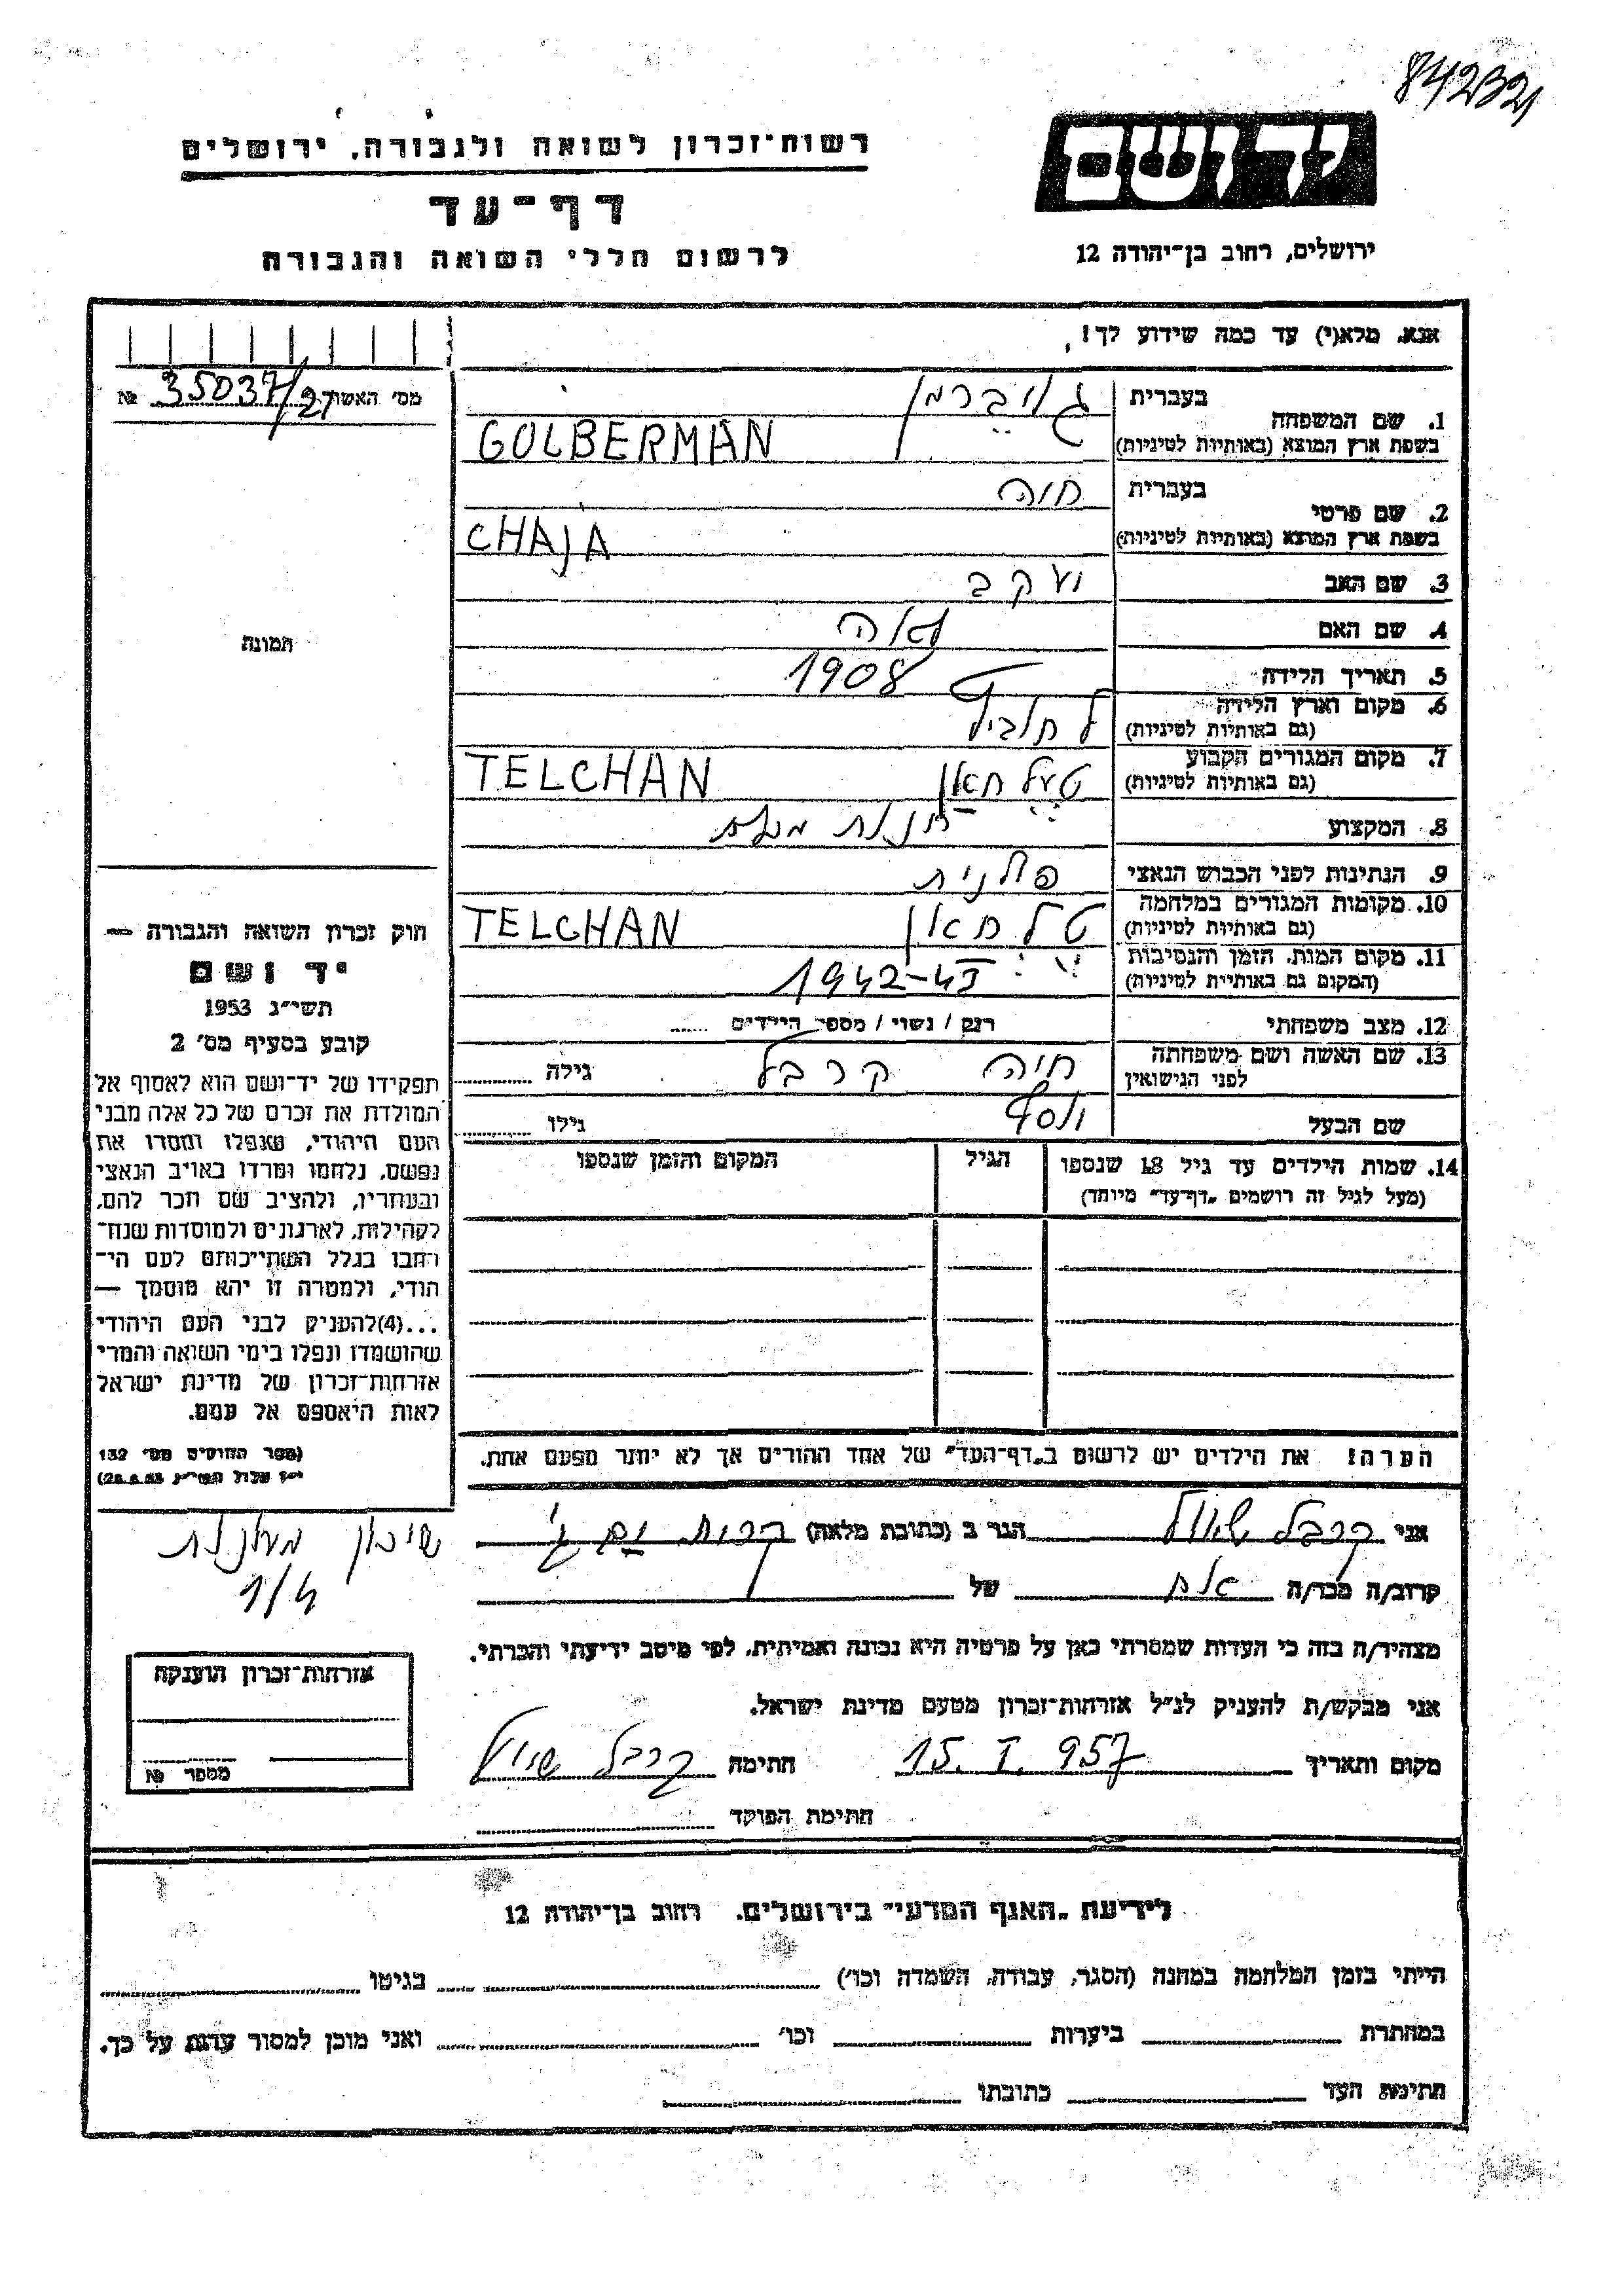 842321
יד ושם
רשות-זכרון לשואה ולגבורה, ירושלים
דף-עד
לרשום חללי השואה והגבורה
ירושלים, רחוב בן-יהודה 12
אנא, מלא(י) עד כמה שידוע לך!
מס' האשה 35037/21 №
1. שם המשפחה
בעברית
בשפת ארץ המוצא (באותיות לטיניות)
GOLBERMAN
2. שם פרטי
בעברית חיה
בשפת ארץ המוצא (באותיות לטיניות)
CHAJA
3. שם האב יעקב
4. שם האם לאה
5. תאריך הלידה 1908
6. מקום וארץ הלידה
(גם באותיות לטיניות)
7. מקום המגורים הקבוע טעלחאן TELCHAN
(גם באותיות לטיניות)
8. המקצוע
9. הנתינות לפני הכבוש הנאצי פולנית
10. מקומות המגורים במלחמה טלחאן TELCHAN
(גם באותיות לטיניות)
11. מקום המות, הזמן והנסיבות 1942-43
(המקום גם באותיות לטיניות)
12. מצב משפחתי רווק / נשוי / מספר הילדים ......
13. שם האשה ושם משפחתה חיה קרבל גילה
לפני הנישואין
שם הבעל יוסף גילו
14. שמות הילדים עד גיל 18 שנספו הגיל המקום והזמן שנספו
(מעל לגיל זה רושמים "דף-עד" מיוחד)
הערה! את הילדים יש לרשום ב"דף-העד" של אחד ההורים אך לא יותר מפעם אחת.
תמונה
חוק זכרון השואה והגבורה —
יד ושם
תשי"ג 1953
קובע בסעיף מס' 2
תפקידו של יד-ושם הוא לאסוף אל
המולדת את זכרם של כל אלה מבני
העם היהודי, שנפלו ומסרו את
נפשם, נלחמו ומרדו באויב הנאצי
ובעוזריו, ולהציב שם וזכר להם,
לקהילות, לארגונים ולמוסדות שנח-
רבו בגלל השתייכותם לעם הי-
הודי, ולמטרה זו יהא מוסמך —
...(4)להעניק לבני העם היהודי
שהושמדו ונפלו בימי השואה והמרי
אזרחות-זכרון של מדינת ישראל
לאות היאספם אל עמם.
(ספר החוקים מס' 132
י"ז אלול תשי"ג 28.8.53)
אני קרבל שאול הגר ב (כתובת מלאה) קרית ים ג'
שיכון מעונות
1/4
קרוב/ה מכר/ה אח של
מצהיר/ה בזה כי העדות שמסרתי כאן על פרטיה היא נכונה ואמיתית, לפי מיטב ידיעתי והכרתי.
אני מבקש/ת להעניק לנ"ל אזרחות-זכרון מטעם מדינת ישראל.
מקום ותאריך 15. I. 957 חתימה קרבל שאול
חתימת הפוקד
אזרחות-זכרון הוענקה
מספר №
לידיעת "האגף המדעי" בירושלים, רחוב בן-יהודה 12
הייתי בזמן המלחמה במחנה (הסגר, עבודה, השמדה וכו') בגיטו
במחתרת ביערות וכו' ואני מוכן למסור עדות על כך.
חתימת העד כתובתו